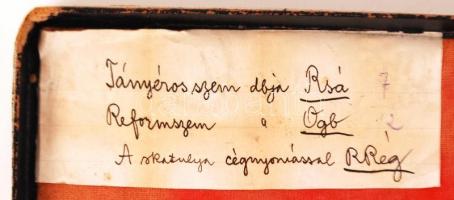 Tányérosszem dbja Rsá 7
Reformszem " Ogb 2
A skatulya cégnyomással RRég